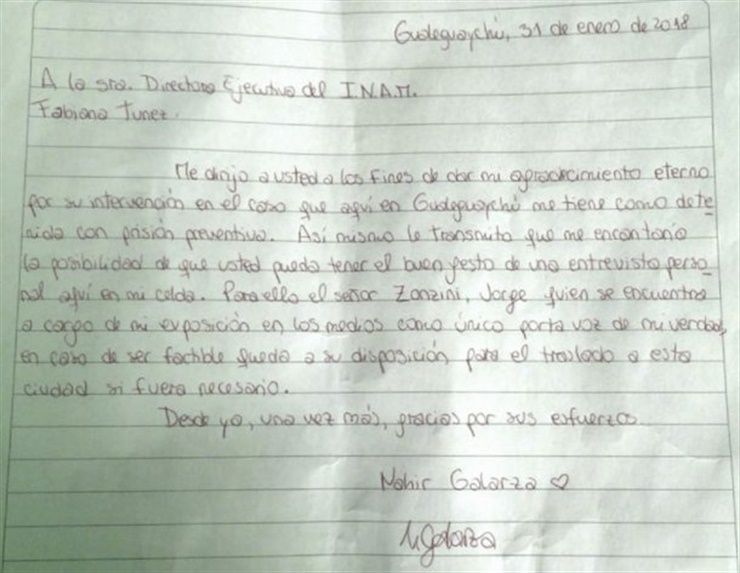 Gualeguaychú, 31 de enero de 2018
A la sra. Directora Ejecutiva del I.N.A.M.
Fabiana Tunez.
Me dirijo a usted a los fines de dar mi agradecimiento eterno
por su intervención en el caso que aquí en Gualeguaychú me tiene como dete
nida con prisión preventiva. Así mismo le transmito que me encantaría
la posibilidad de que usted pueda tener el buen gesto de una entrevista perso
nal aquí en mi celda. Para ello el señor Zonzini, Jorge quien se encuentra
a cargo de mi exposición en los medios como único porta voz de mi verdad,
en caso de ser factible queda a su disposición para el traslado a esta
ciudad si fuera necesario.
Desde ya, una vez más, gracias por sus esfuerzos
Nahir Galarza ♡
NGalarza